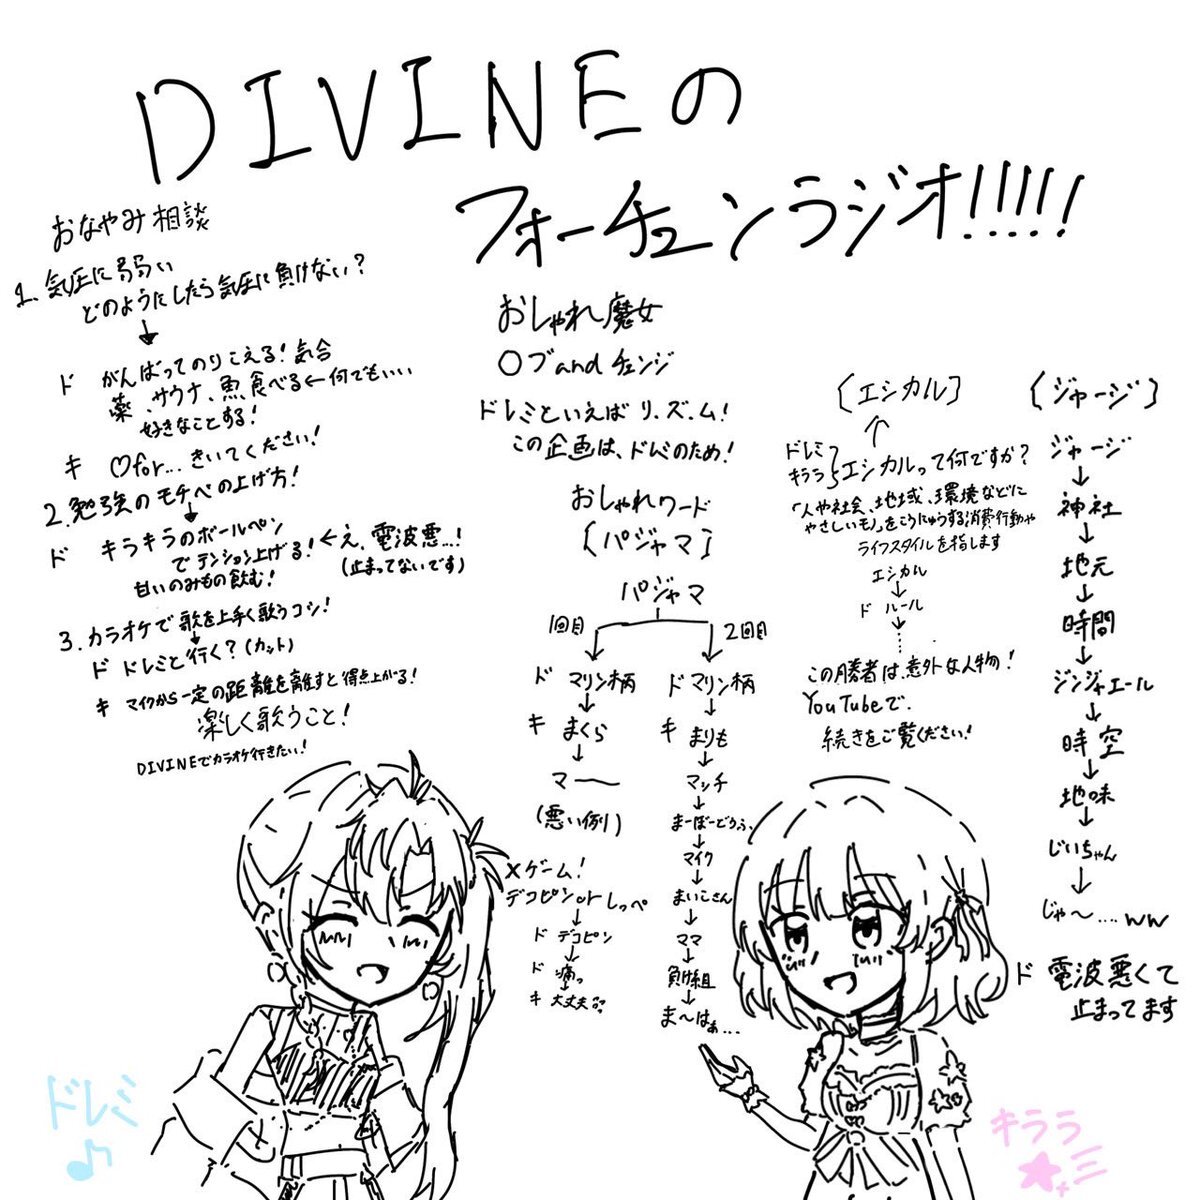 DIVINEの
フォーチュンラジオ!!!!!
おなやみ相談
1、気圧に弱い
どのようにしたら気圧に負けない?
↓
ド がんばってのりこえる!気合
薬、サウナ、魚食べる←何でもいい
好きなことする!
キ ♡for…きいてください!
2.勉強のモチベの上げ方!
↓
ド キラキラのボールペン
でテンション上げる!←え、電波悪…!
甘いのみもの飲む!
(止まってないです)
3.カラオケで歌を上手く歌うコツ!
↓
ド ドレミと行く?(カット)
キ マイクから一定の距離を離すと得点上がる!
楽しく歌うこと!
DIVINEでカラオケ行きたい!
おしゃれ魔女
○ブandチェンジ
ドレミといえばリ.ズ.ム!
この企画は、ドレミのため!
おしゃれワード
[パジャマ]
パジャマ
1回目
ド マリン柄
↓
キ まくら
↓
マ――
(悪い例)
×ゲーム!
デコピンorしっぺ
↓
ド デコピン
↓
ド 痛っ
↓
キ 大丈夫??
2回目
ド マリン柄
↓
キ まりも
↓
マッチ
↓
まーぼーどうふ、
↓
マイク
↓
まいこさん
↓
ママ
↓
負け組
↓
ま〜はぁ…
[エシカル]
↑
ドレミ
キララ
エシカルって何ですか?
「人や社会、地域、環境などに
やさしいモノ」をこうにゅうする消費行動や
ライフスタイルを指します
エシカル
↓
ド ルール
↓
……
この勝者は、意外な人物!
YouTubeで、
続きをご覧ください!
[ジャージ]
ジャージ
↓
神社
↓
地元
↓
時間
↓
ジンジャエール
↓
時空
↓
地味
↓
じいちゃん
↓
じゃ〜….ww
ド 電波悪くて
止まってます
ドレミ
♪
キララ
★